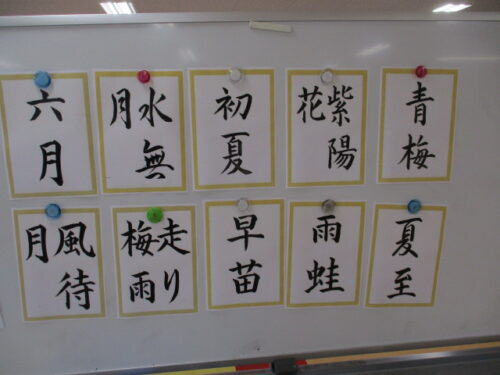 六月
水無
月
初夏
紫陽
花
青梅
風待
月
走り
梅雨
早苗
雨蛙
夏至